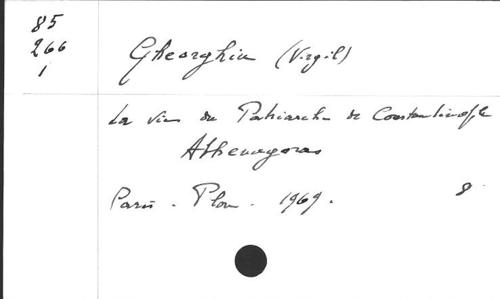 85
266
1
Gheorghiu (Virgil)
La vie du Patriarche de Constantinople
Athenagoras
Paris - Plon - 1969.
8º